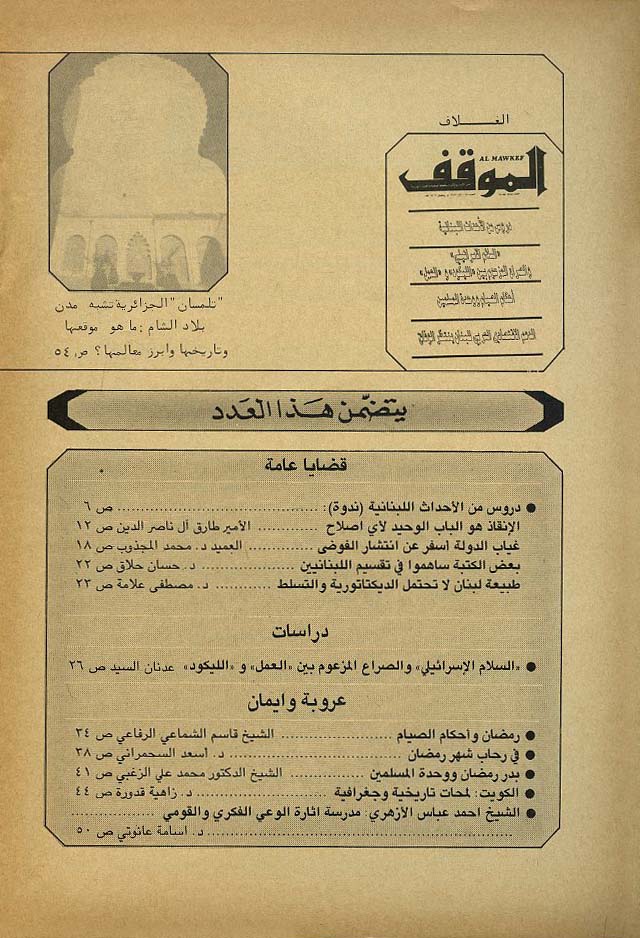 الغلاف
AL MAWKEF
الموقف
دروس من الأحداث اللبنانية
«السلام الاسرائيلي»
والصراع المزعوم بين «الليكود» و «العمل»
أحكام الصيام ووحدة المسلمين
"تلمسان" الجزائرية تشبه مدن
بلاد الشام : ما هو موقعها
وتاريخها وابرز معالمها؟ ص. ٥٤
يتضمّن هذا العدد
قضايا عامة
● دروس من الأحداث اللبنانية (ندوة): ........ ص ٦
الإنقاذ هو الباب الوحيد لأي اصلاح ........ الأمير طارق آل ناصر الدين ص ١٢
غياب الدولة أسفر عن انتشار الفوضى ........ العميد د. محمد المجذوب ص ١٨
بعض الكتبة ساهموا في تقسيم اللبنانيين ........ د. حسان حلاق ص ٢٢
طبيعة لبنان لا تحتمل الديكتاتورية والتسلط ........ د. مصطفى علامة ص ٢٣
دراسات
● «السلام الإسرائيلي» والصراع المزعوم بين «العمل» و «الليكود» عدنان السيد ص ٢٦
عروبة وايمان
● رمضان وأحكام الصيام ........ الشيخ قاسم الشماعي الرفاعي ص ٣٤
● في رحاب شهر رمضان ........ د. أسعد السحمراني ص ٣٨
● بدر رمضان ووحدة المسلمين ........ الشيخ الدكتور محمد علي الزغبي ص ٤١
● الكويت: لمحات تاريخية وجغرافية ........ د. زاهية قدورة ص ٤٤
● الشيخ احمد عباس الأزهري: مدرسة اثارة الوعي الفكري والقومي ........
........ د. اسامة عانوتي ص ٥٠